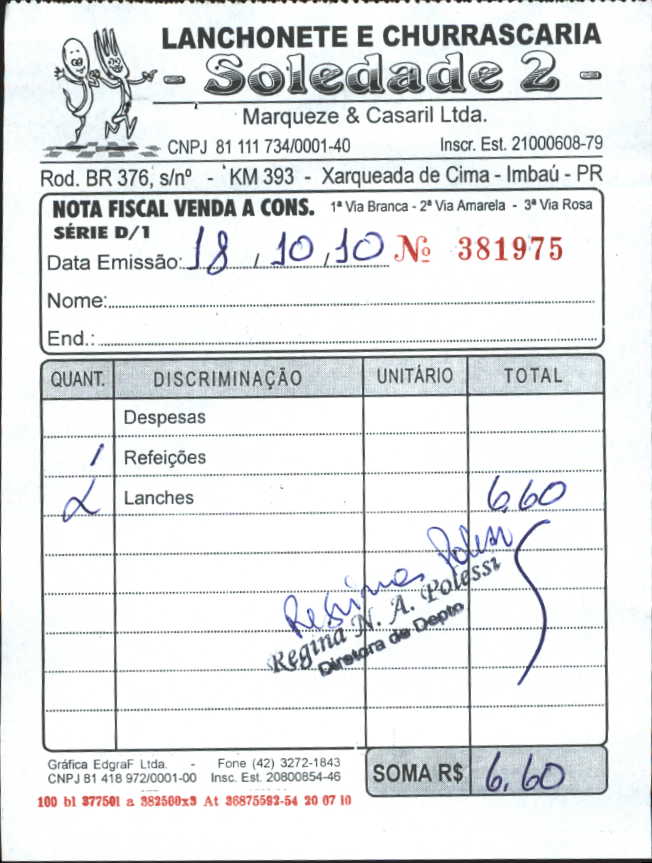 LANCHONETE E CHURRASCARIA
- Soledade 2 -
Marqueze & Casaril Ltda.
CNPJ 81 111 734/0001-40 Inscr. Est. 21000608-79
Rod. BR 376, s/nº - KM 393 - Xarqueada de Cima - Imbaú - PR
NOTA FISCAL VENDA A CONS. 1ª Via Branca - 2ª Via Amarela - 3ª Via Rosa
SÉRIE D/1
Data Emissão: 18, 10, 10 Nº 381975
Nome:
End.:
QUANT. DISCRIMINAÇÃO UNITÁRIO TOTAL
Despesas
1 Refeições
2 Lanches 6,60
Regina Polessi
Regina N. A. Polessi
Diretora de Depto
Gráfica EdgraF Ltda. - Fone (42) 3272-1843
CNPJ 81 418 972/0001-00 Insc. Est. 20800854-46
SOMA R$ 6,60
100 bl 377501 a 382500x3 At 36875592-54 20 07 10